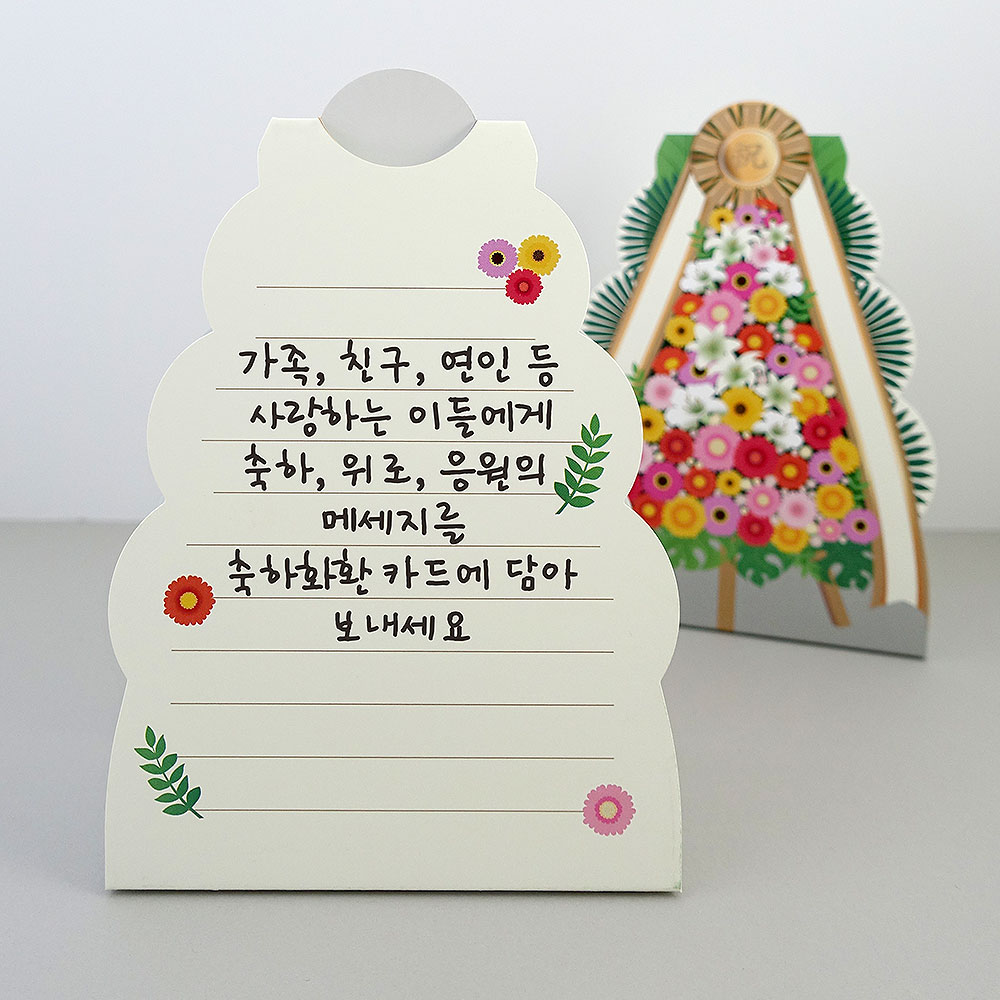 가족, 친구, 연인 등
사랑하는 이들에게
축하, 위로, 응원의
메세지를
축하화환 카드에 담아
보내세요